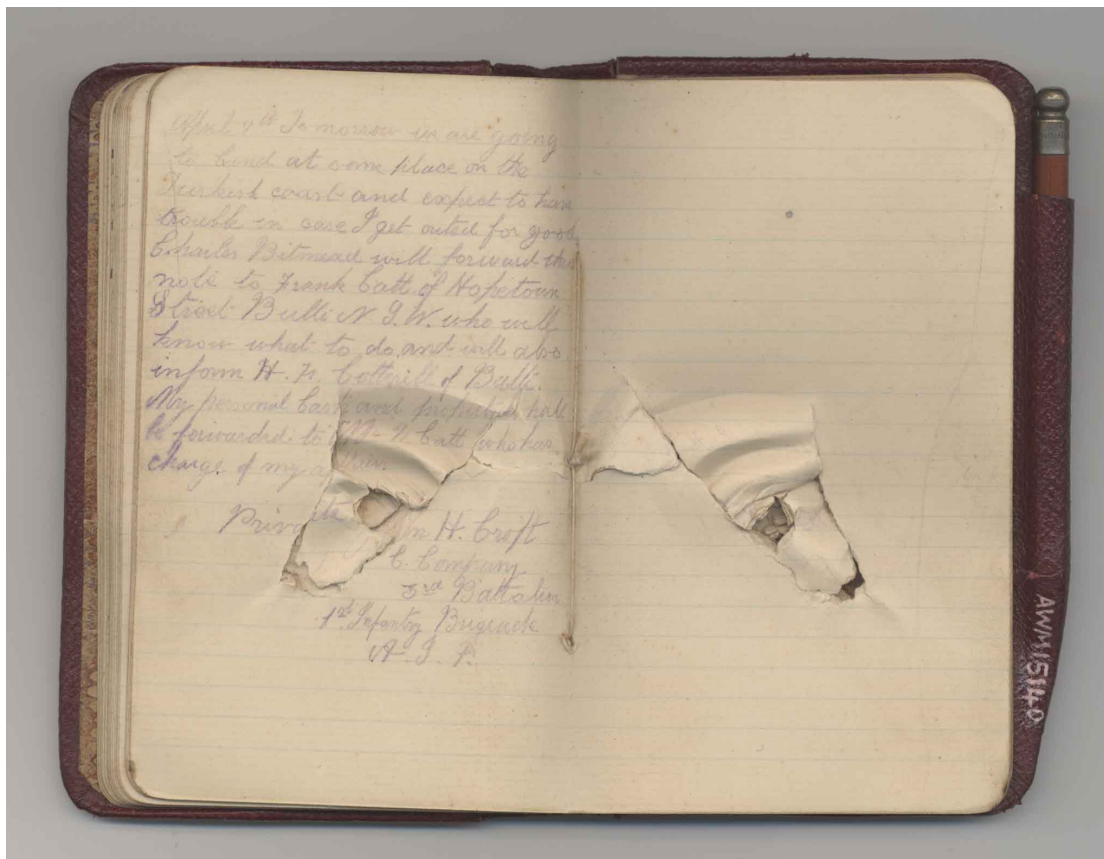 April Tomorrow we are going
to land at some place on the
Turkish coast and expect to have
trouble in case I get outed for good
Charles Bitmead will forward this
note to Frank Catt of Hopetoun
Street Bulli N.S.W. who will
know what to do and will also
inform H. Cotterill of Bulli.
My personal Cash and shall
be forwarded to Catt who has
charge of my
Private H. Croft
C. Company
3rd Battalion
1st Infantry Brigade
A. I. F.
AWM15140